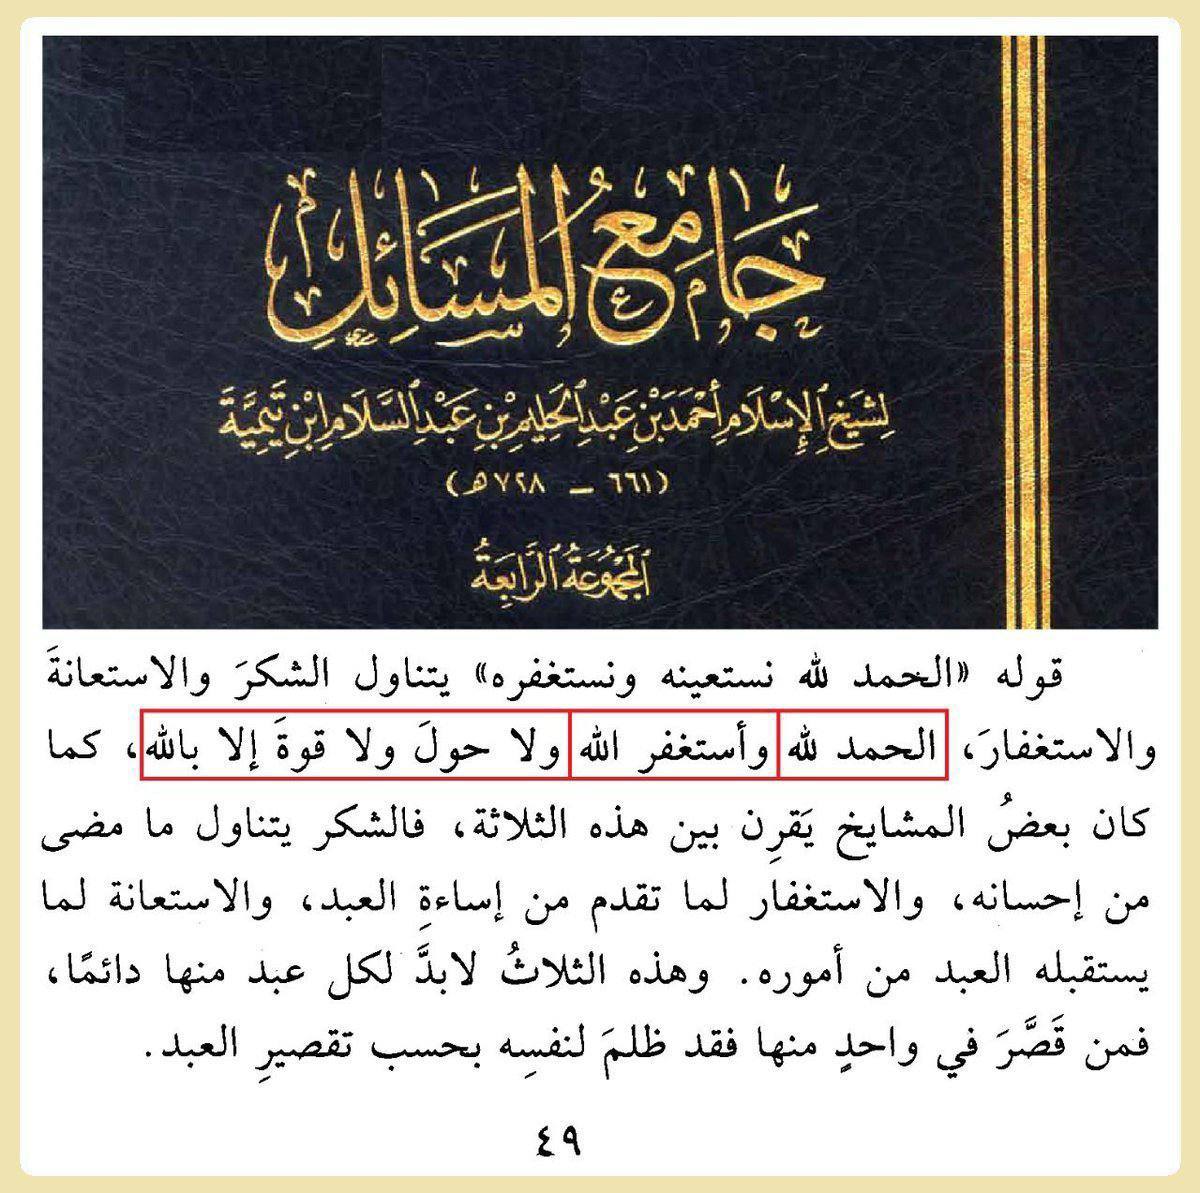 جامع المسائل
لشيخ الإسلام أحمد بن عبد الحليم بن عبد السلام ابن تيمية
(٦٦١ - ٧٢٨هـ)
المجموعة الرابعة
قوله «الحمد لله نستعينه ونستغفره» يتناول الشكرَ والاستعانةَ
والاستغفارَ، الحمد لله وأستغفر الله ولا حولَ ولا قوةَ إلا بالله، كما
كان بعضُ المشايخ يَقرِن بين هذه الثلاثة، فالشكر يتناول ما مضى
من إحسانه، والاستغفار لما تقدم من إساءةِ العبد، والاستعانة لما
يستقبله العبد من أموره. وهذه الثلاثُ لابدَّ لكل عبد منها دائمًا،
فمن قَصَّرَ في واحدٍ منها فقد ظلمَ لنفسِه بحسب تقصيرِ العبد.
٤٩